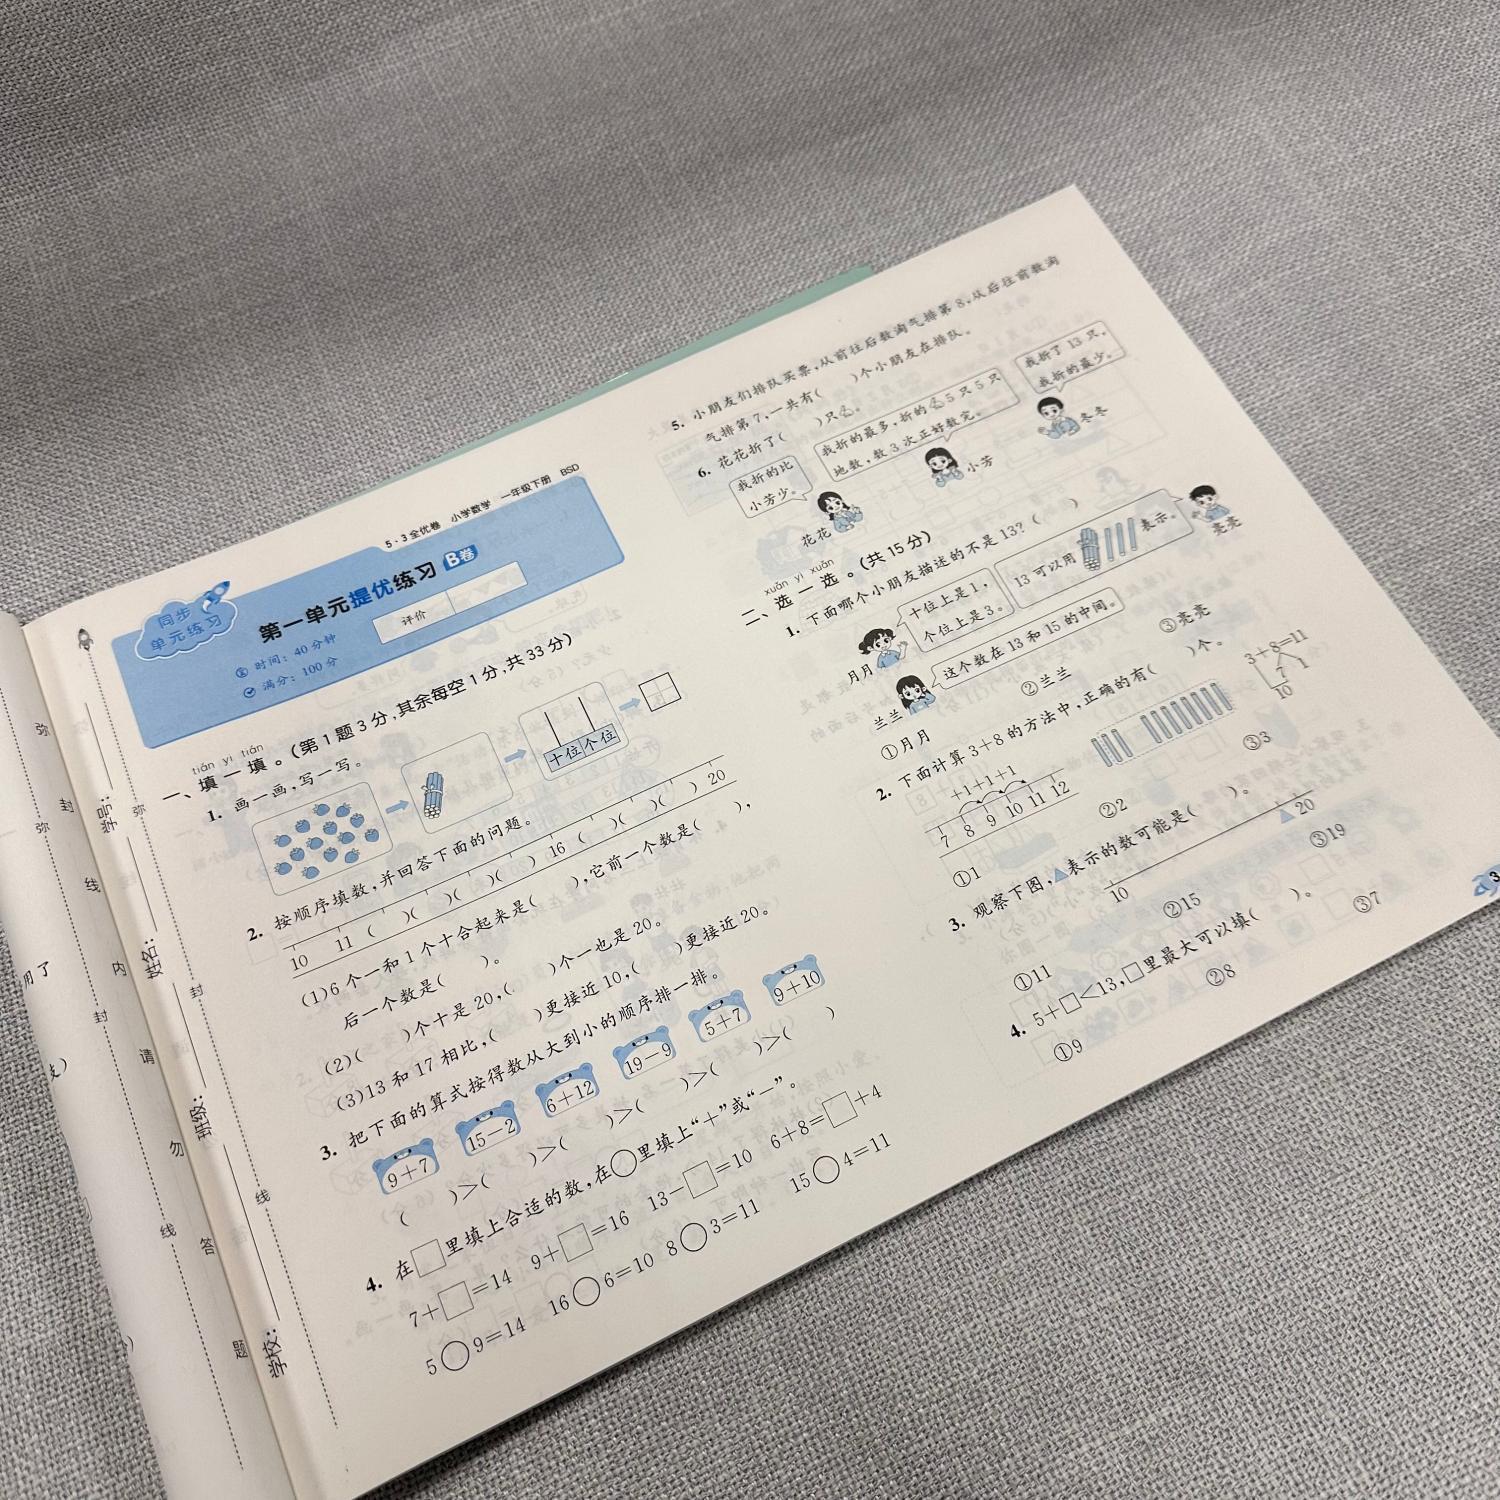 5·3全优卷 小学数学 一年级下册 BSD
同步
单元练习
第一单元提优练习 B卷
时间：40分钟
满分：100分
评价
tián yi tián
一、填一填。（第1题3分，其余每空1分，共33分）
1. 画一画，写一写。
十位 个位
2. 按顺序填数，并回答下面的问题。
10 11 ( )( )( )( ) 16 ( )( )( ) 20
(1)6个一和1个十合起来是( )，它前一个数是( )，
后一个数是( )。
(2)( )个十是20，( )个一也是20。
(3)13和17相比，( )更接近10，( )更接近20。
3. 把下面的算式按得数从大到小的顺序排一排。
9+7 15−2 6+12 19−9 5+7 9+10
( )>( )>( )>( )>( )>( )
4. 在□里填上合适的数，在○里填上“+”或“−”。
7+□=14 9+□=16 13−□=10 6+8=□+4
5○9=14 16○6=10 8○3=11 15○4=11
5. 小朋友们排队买票，从前往后数淘气排第8，从后往前数淘
气排第7，一共有( )个小朋友在排队。
6. 花花折了( )只。
我折的比
小芳少。
花花
我折的最多，折的 5只5只
地数，数3次正好数完。
小芳
我折了13只，
我折的最少。
冬冬
xuǎn yi xuǎn
二、选一选。（共15分）
1. 下面哪个小朋友描述的不是13？( )
十位上是1，
个位上是3。
月月
13可以用 表示。
亮亮
这个数在13和15的中间。
兰兰
①月月 ②兰兰 ③亮亮
2. 下面计算3+8的方法中，正确的有( )个。
+1+1+1
7 8 9 10 11 12
3+8=11
7 1
10
①1 ②2 ③3
3. 观察下图，▲表示的数可能是( )。
10 ▲ 20
①11 ②15 ③19
4. 5+□<13，□里最大可以填( )。
①9 ②8 ③7
3
学号：
姓名：
班级：
学校：
弥 封 线 内 请 勿 答 题
弥 封 线
弥 封 线
用了